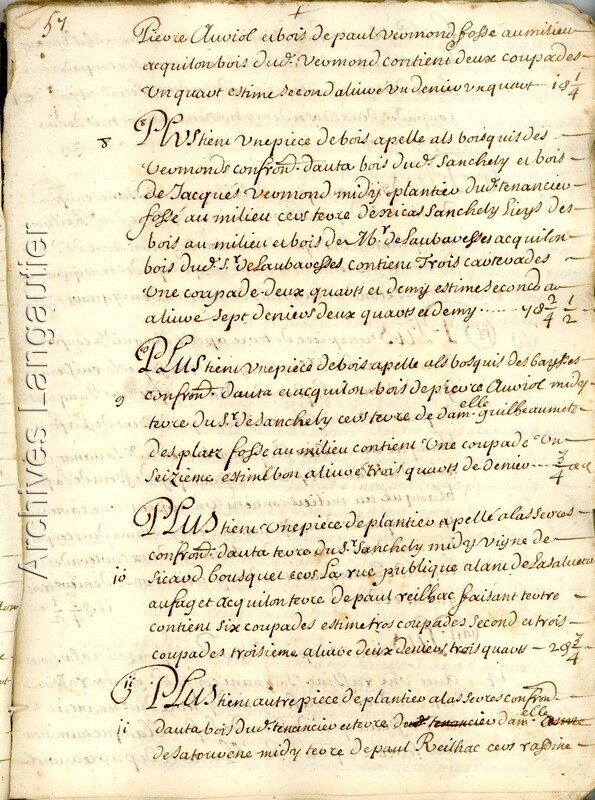 57
Pierre Auriol et bois de paul vermond fosse au milieu
acquilon bois dud. vermond contient deux coupades
un quart estime second alivré un denier un quart 1 d 1/4
8
PLUS tient une piece de bois apelle als bosquis des
vermonds confron. d'auta bois dud. Sanchely et bois
de Jacques vermond midy plantier dud. tenancier
fosse au milieu cers terre d'ericas Sanchely
bois au milieu et bois de Mr. de Laubaresses acquilon
bois dud. Sr. de Laubaresses contient Trois carterades
Une coupade deux quarts et demy estime second
alivré sept deniers deux quarts et demy 7 d 2/4 1/2
PLUS tient une piece de bois apelle als bosquis des
9
confron. d'auta et acquilon bois de pierre Auriol midy
terre du Sr. de Sanchely cers terre de dam.elle guilheaumete
desplatz fosse au milieu contient Une coupade Un
seizieme estime bon alivré trois quarts de denier 3/4 d
PLUS tient une piece de plantier apellé a las serres
confron. d'auta terre du Sr. Sanchely midy vigne de
10
Sicard bousquet cers La rue publique alant de Lasalvetat
au faget acquilon terre de paul reilhac faisant tertre
contient six coupades estime tros coupades second et trois
coupades troisieme alivré deux deniers trois quarts 2 d 3/4
11
PLUS tient autre piece de plantier a las serres confron.
11
d'auta bois dud. tenancier et terre dud. tenancier dam.elle
de Latourene midy terre de paul Reilhac cers rassine
Archives Langautier